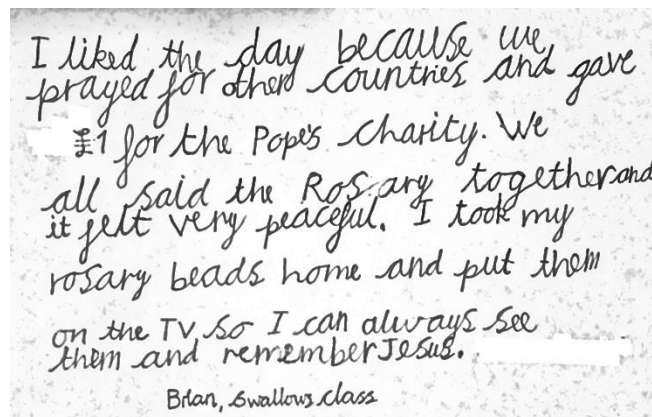 I liked the day because we
prayed for other countries and gave
£1 for the Pope's charity. We
all said the Rosary together and
it felt very peaceful. I took my
rosary beads home and put them
on the TV so I can always see
them and remember Jesus.
Brian, Swallows class